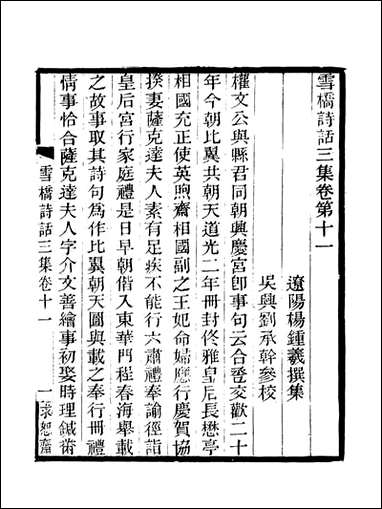 雪橋詩話三集卷第十一
遼陽楊鍾羲撰集
吳興劉承幹參校
權文公與縣君同朝興慶宮卽事句云合巹交歡二十
年今朝比翼共朝天道光二年冊封佟雅皇后長懋亭
相國充正使英煦齋相國副之王妃命婦應行慶賀協
揆妻薩克達夫人素有足疾不能行六肅禮奉諭徑詣
皇后宮行家庭禮是日早朝偕入東華門程春海舉載
之故事取其詩句爲作比翼朝天圖與載之奉行冊禮
情事恰合薩克達夫人字介文善繪事初娶時理鍼黹
雪橋詩話三集卷十一
一
求恕齋